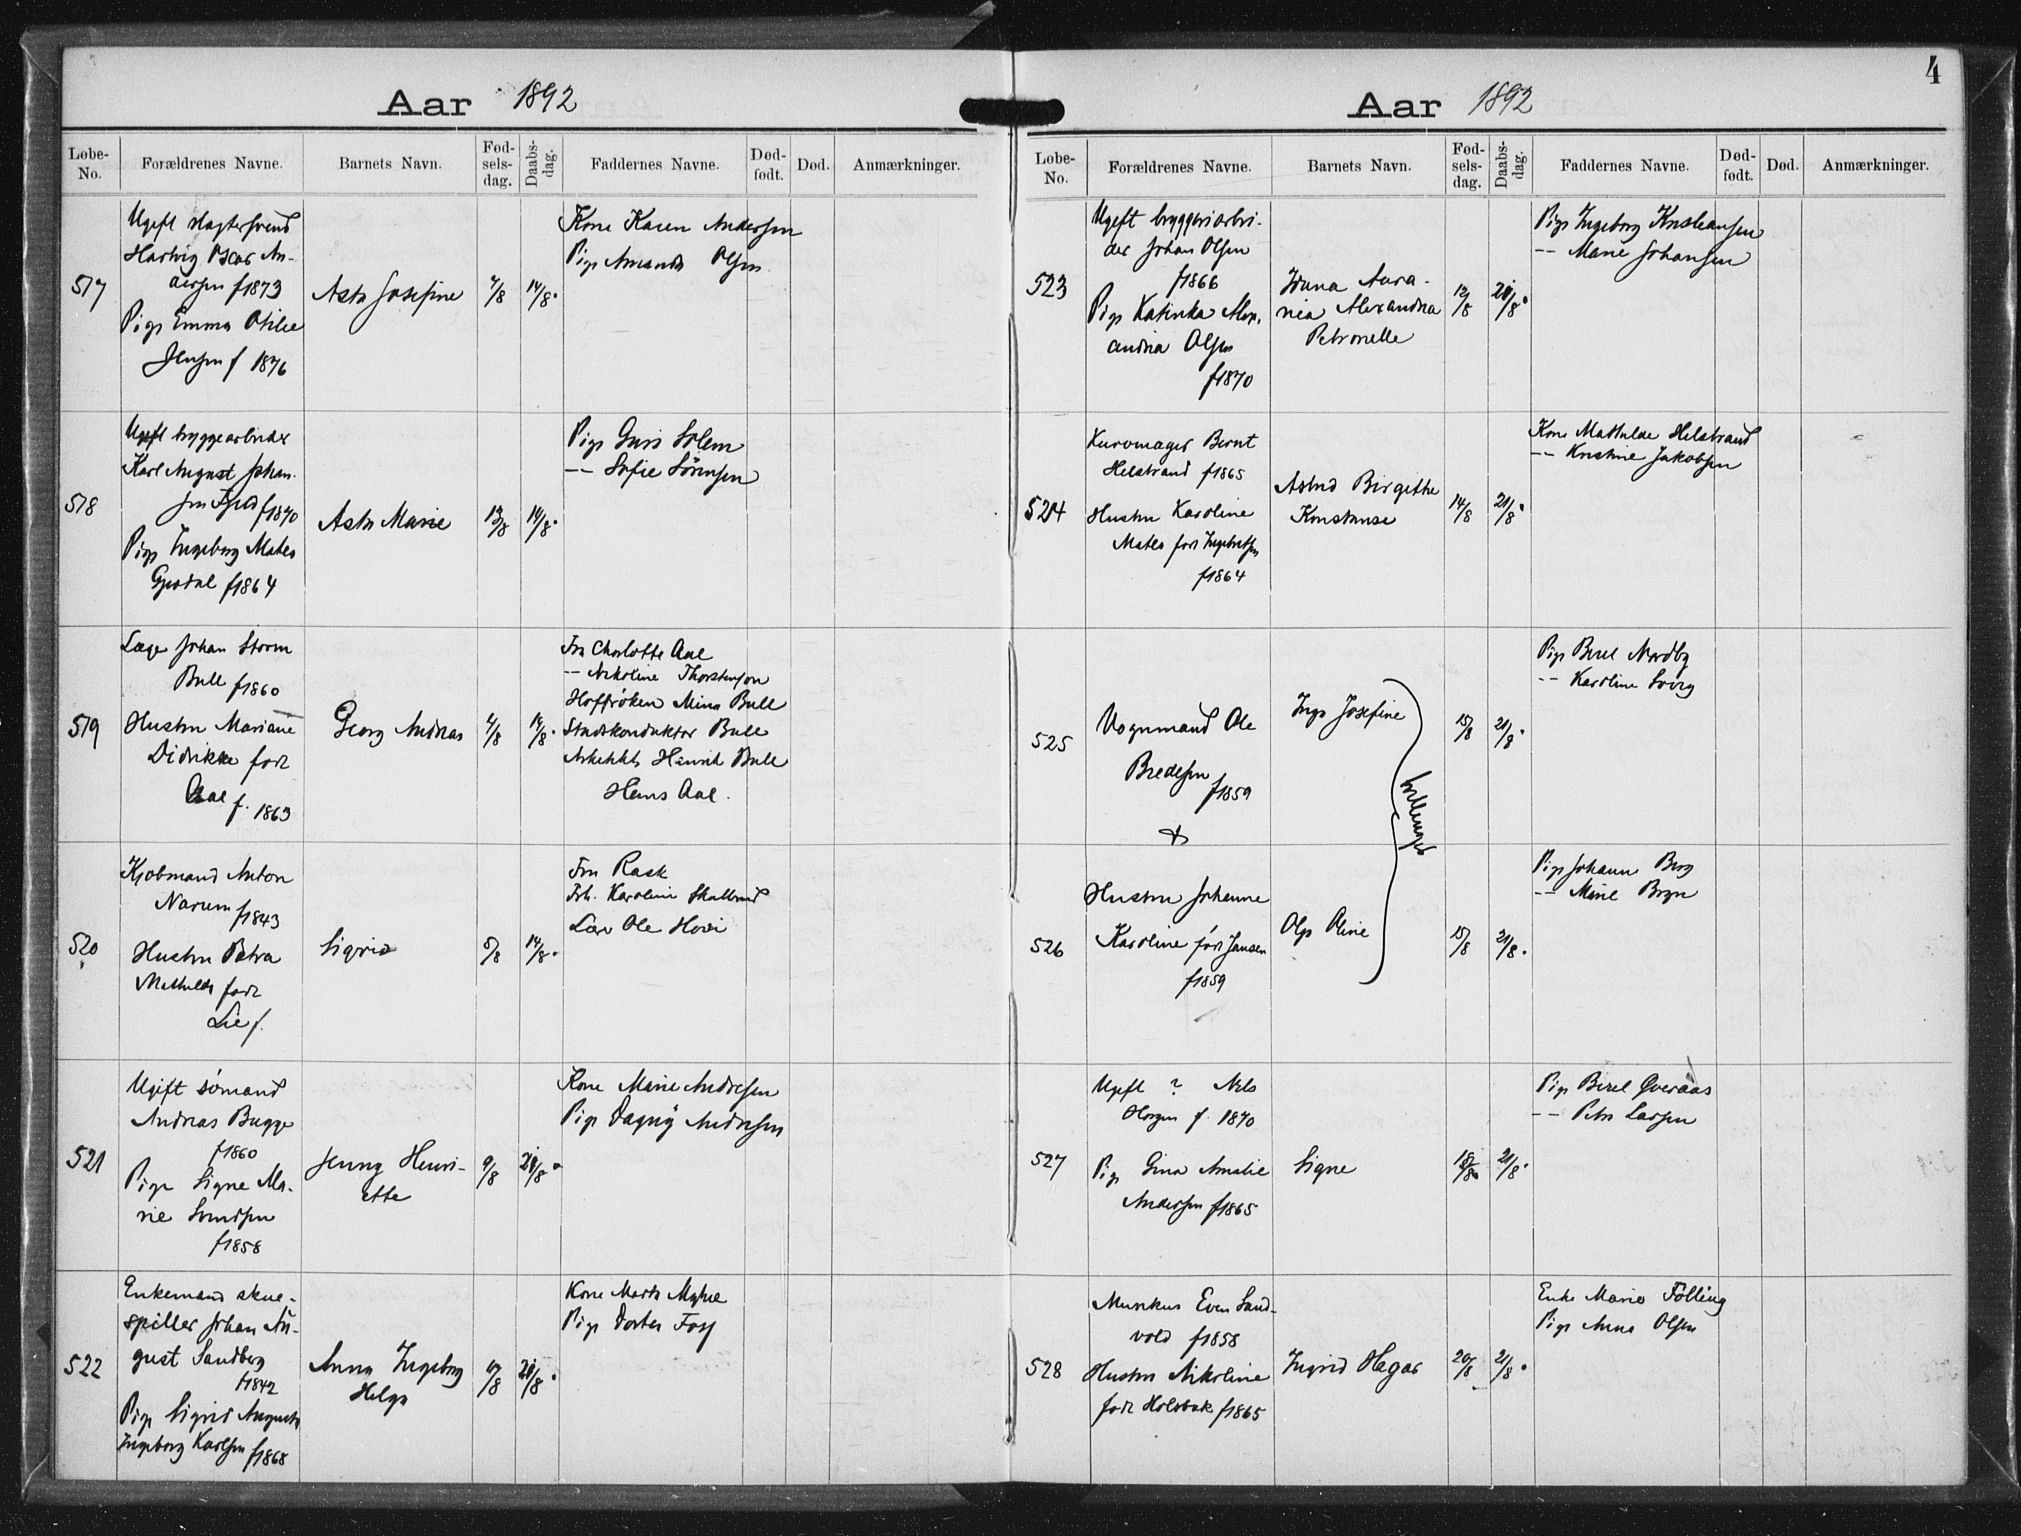 Aar 1892
Løbe-No.
Forældrenes Navne.
Barnets Navn.
Fød-selsdag.
Daabs-dag.
Faddernes Navne.
Død-født.
Død.
Anmærkninger.
517
Ugift slagtersvend
Hartvig Oscar An-
dersen f 1873
Pige Emma Otilie
Jensen f 1876
Asta Josefine
14/8
Kone Karen Andersen
Pige Amanda Olsen
518
Ugift bryggearbeider
Karl August Johan-
sen f 1870
Pige Ingeborg Mathea
f 1864
Asta Marie
13/8
14/8
Pige Guri Solem
-- Sofie Sörensen
519
Læge Johan Storm
Bull f 1860
Hustru Mariane
Didrikke født
Aal f. 1863
Georg Andreas
4/8
14/8
Fru Charlotte Aal
-- Nikoline Thorstenson
Hoffröken Mina Bull
Stadskonduktør Bull
Arkitekt Henrik Bull
Hans Aal.
520
Kjøbmand Anton
Narum f 1843
Hustru Petra
Mathilde født
Lie f.
Sigrid
5/8
14/8
Fru Rask
Frk. Karoline
Ole Hovi
521
Ugift sömand
Andreas Bugge
f 1860
Pige Signe Ma-
rie Svendsen
f 1858
Jenny Henri-
ette
9/8
21/8
Kone Marie Andresen
Pige Dagny Andresen
522
Enkemand skue-
spiller Johan Au-
gust Sandberg
f 1842
Pige Sigrid Augusta
Ingeborg Karlsen f 1868
Anna Ingeborg
Helga
10/8
21/8
Kone Marta Myhre
Pige Dortea Foss
4
Aar 1892
Løbe-No.
Forældrenes Navne.
Barnets Navn.
Fød-selsdag.
Daabs-dag.
Faddernes Navne.
Død-født.
Død.
Anmærkninger.
523
Ugift bryggeriarbei-
der Johan Olsen
f 1866
Pige Katinka Alex-
andria Olsen
f 1870
Alexandria
Petronelle
12/8
21/8
Pige Ingeborg Kristiansen
-- Marie Johansen
524
Kurvmager Bernt
Helstrand f 1865
Hustru Karoline
Mathea født Ingebretsen
f 1864
Astrid Birgithe
Konstanse
14/8
21/8
Kone Mathilde Helstrand
-- Kristine Jakobsen
525
Vognmand Ole
Bredesen
f 1859
&
Inga Josefine
tvillinger
15/8
21/8
Pige Berel Nordby
-- Karoline
526
Hustru Johanne
Karoline född Jansen
f 1859
Olga Oline
15/8
21/8
Pige Johanne Berg
-- Marie Bryn
527
Ugift ? Nils
f. 1870
Pige Gina Amalie
Andersen f 1865
Signe
18/8
21/8
Pige Berel Överaas
-- Petra Larsen
528
Musikus Even Sand-
vold f 1858
Hustru Nikoline
født Holsbak f 1865
Ingrid Hagar
20/8
21/8
Enke Marie Fölling
Pige Anna Olsen